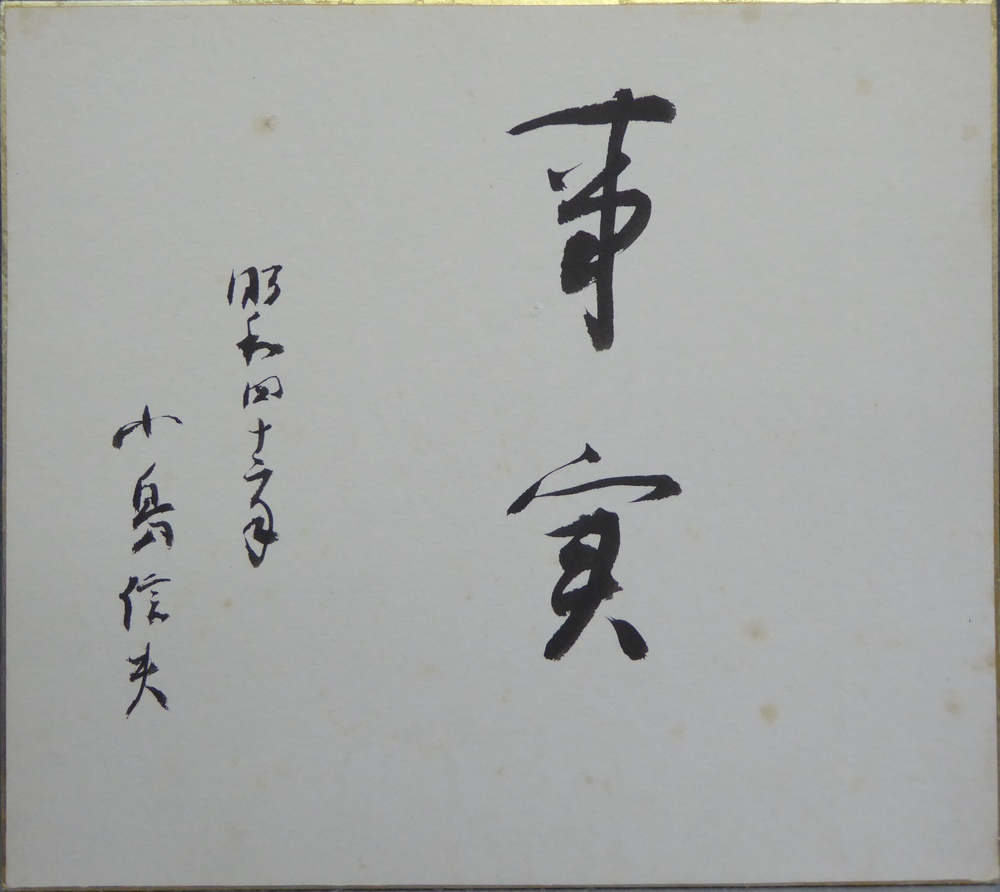 事実
昭和四十二年
小島信夫